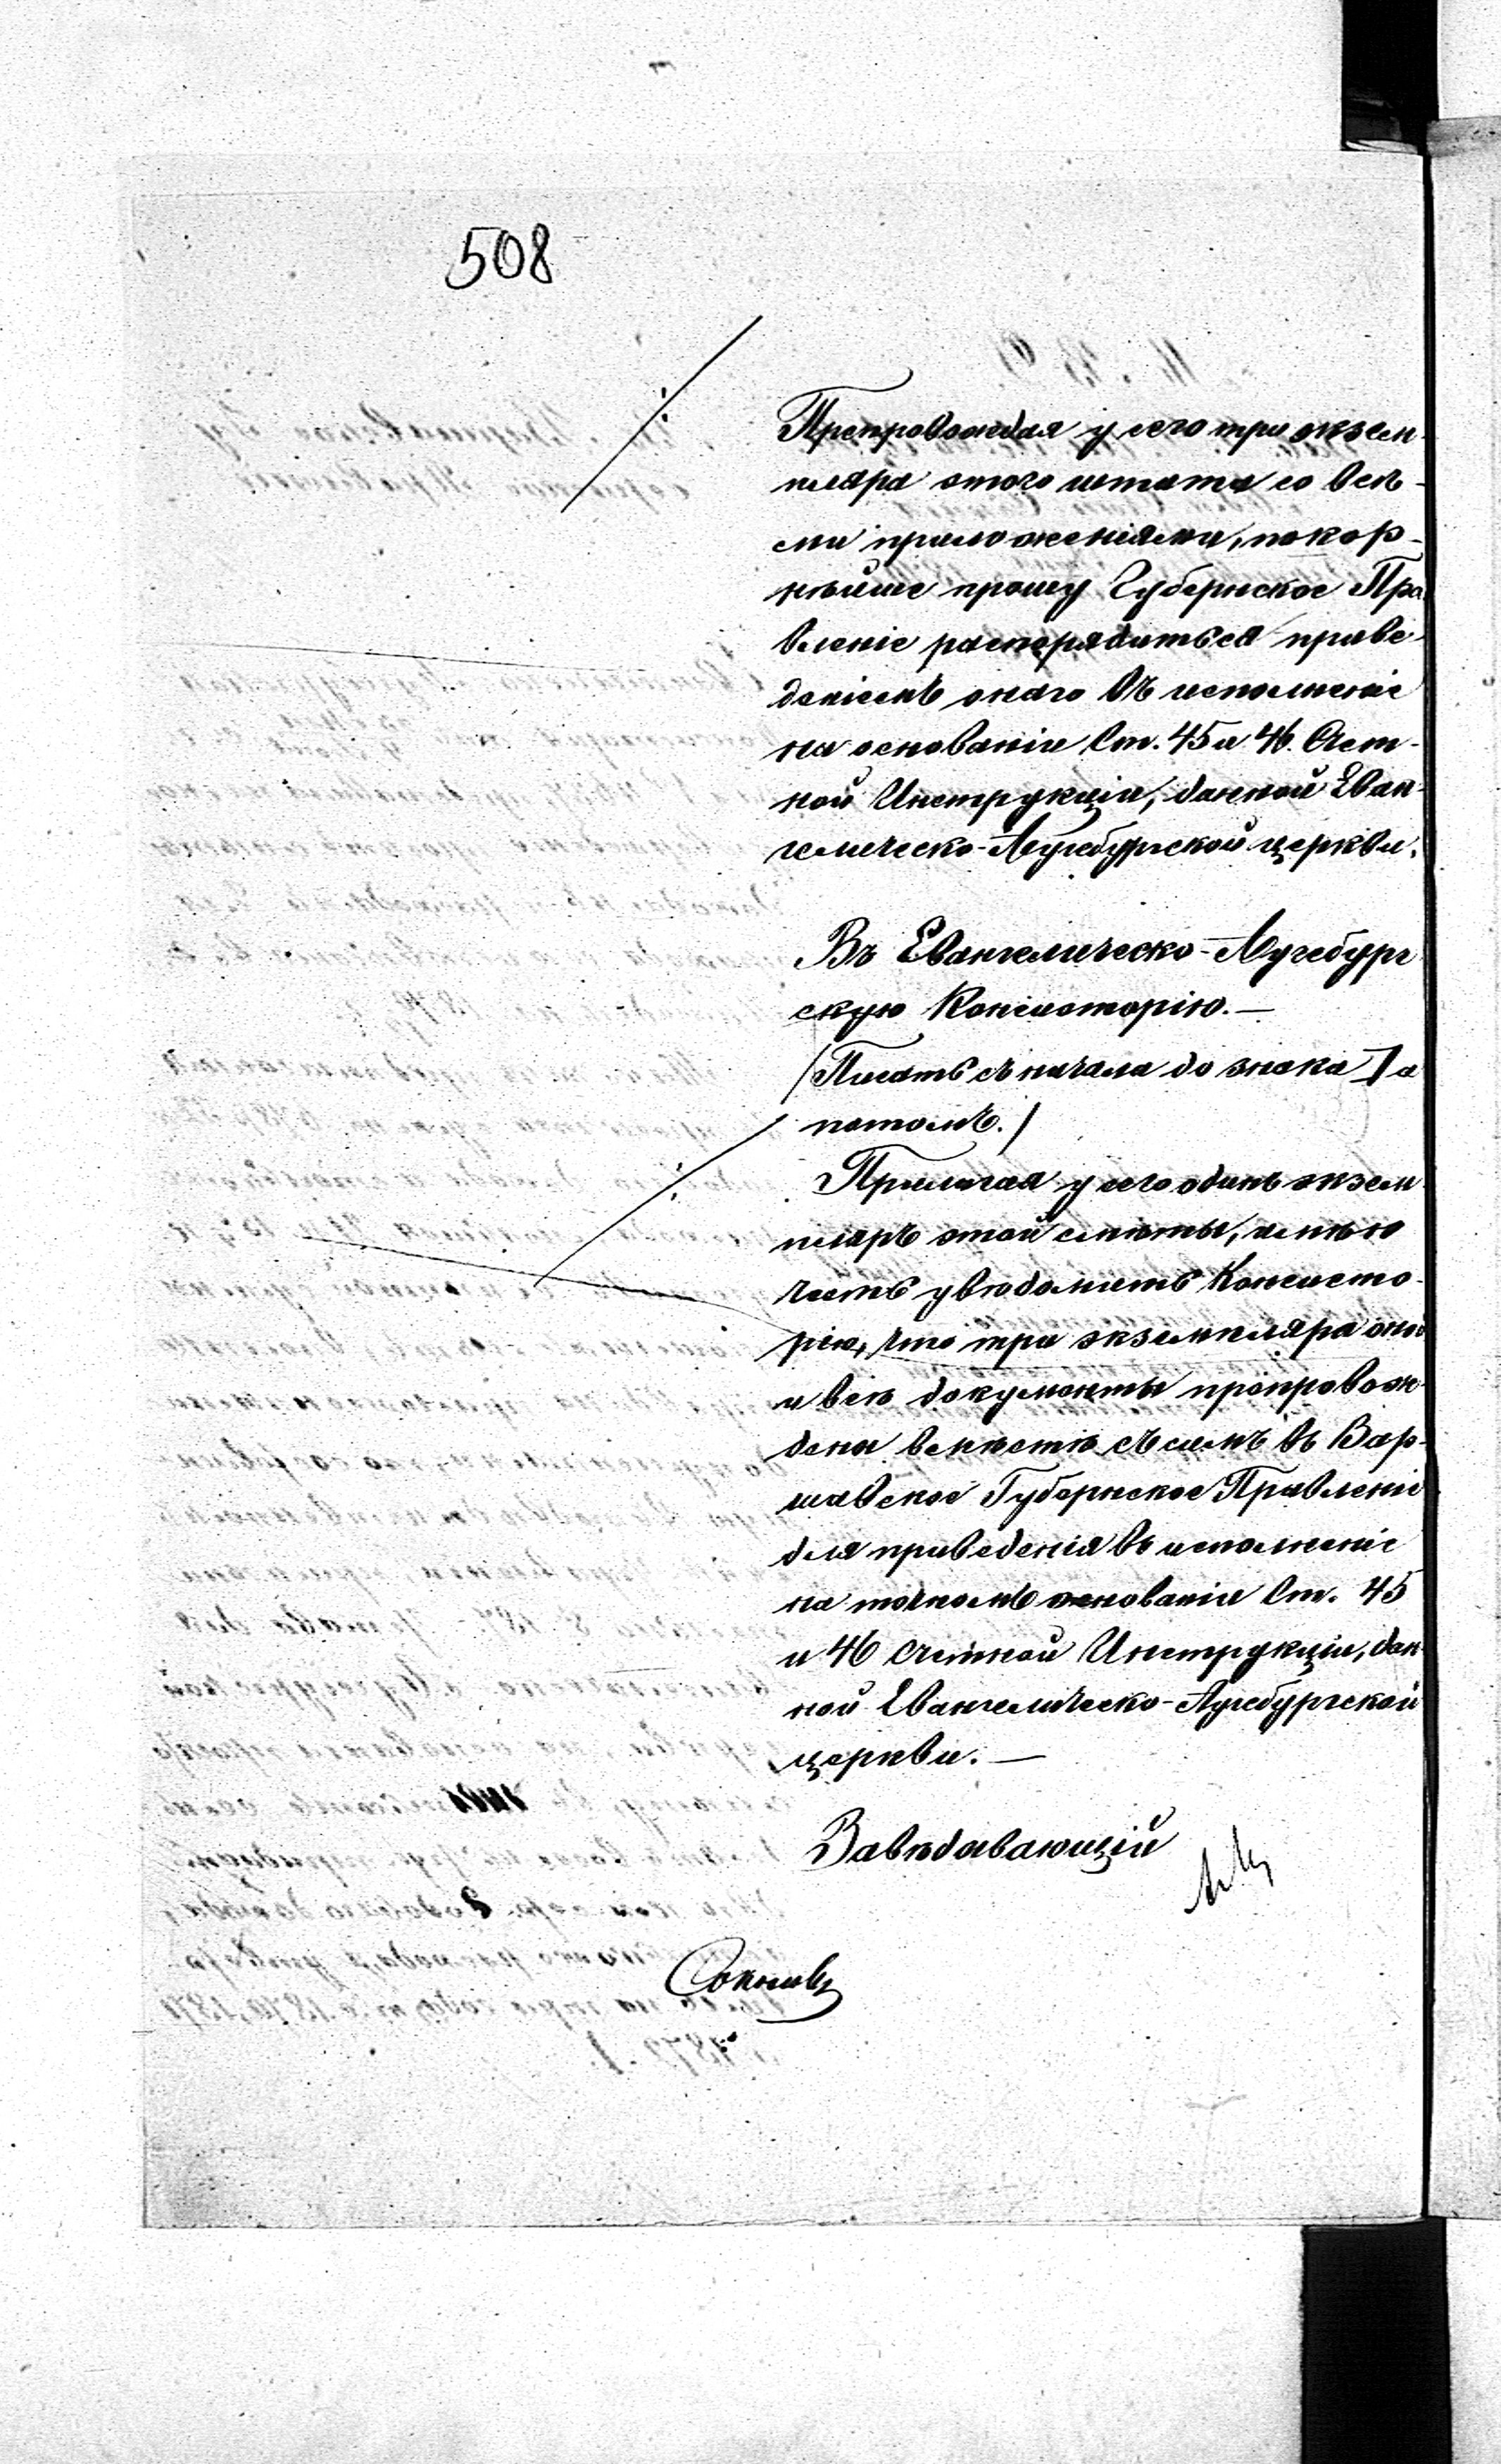 508
Препровождая у сего три экзем-
пляра этого штата со всѣ-
ми приложеніями, покор-
нѣйше прошу Губернское Пра
вленіе распорядиться приве-
деніемъ онаго въ исполненіе
на основаніи Ст. 45 и 46. Счет-
ной Инструкціи, данной Еван-
гелическо-Аугсбургской церкви.
Въ Евангелическо-Аугсбург
скую Консисторію.—
/Писать съ начала до знака ] а
потомъ./
Прилагая у сего одинъ экзем
пляръ этой смѣты, имѣю
честь увѣдомить Консисто-
рію, что три экземпляра оной
и всѣ документы препровож-
дены вмѣстѣ съ симъ въ Вар-
шавское Губернское Правленіе
для приведенія въ исполненіе
на точномъ основаніи Ст. 45
и 46 Счетной Инструкціи, дан
ной Евангелическо-Аугсбургской
церкви.—
Завѣдывающій